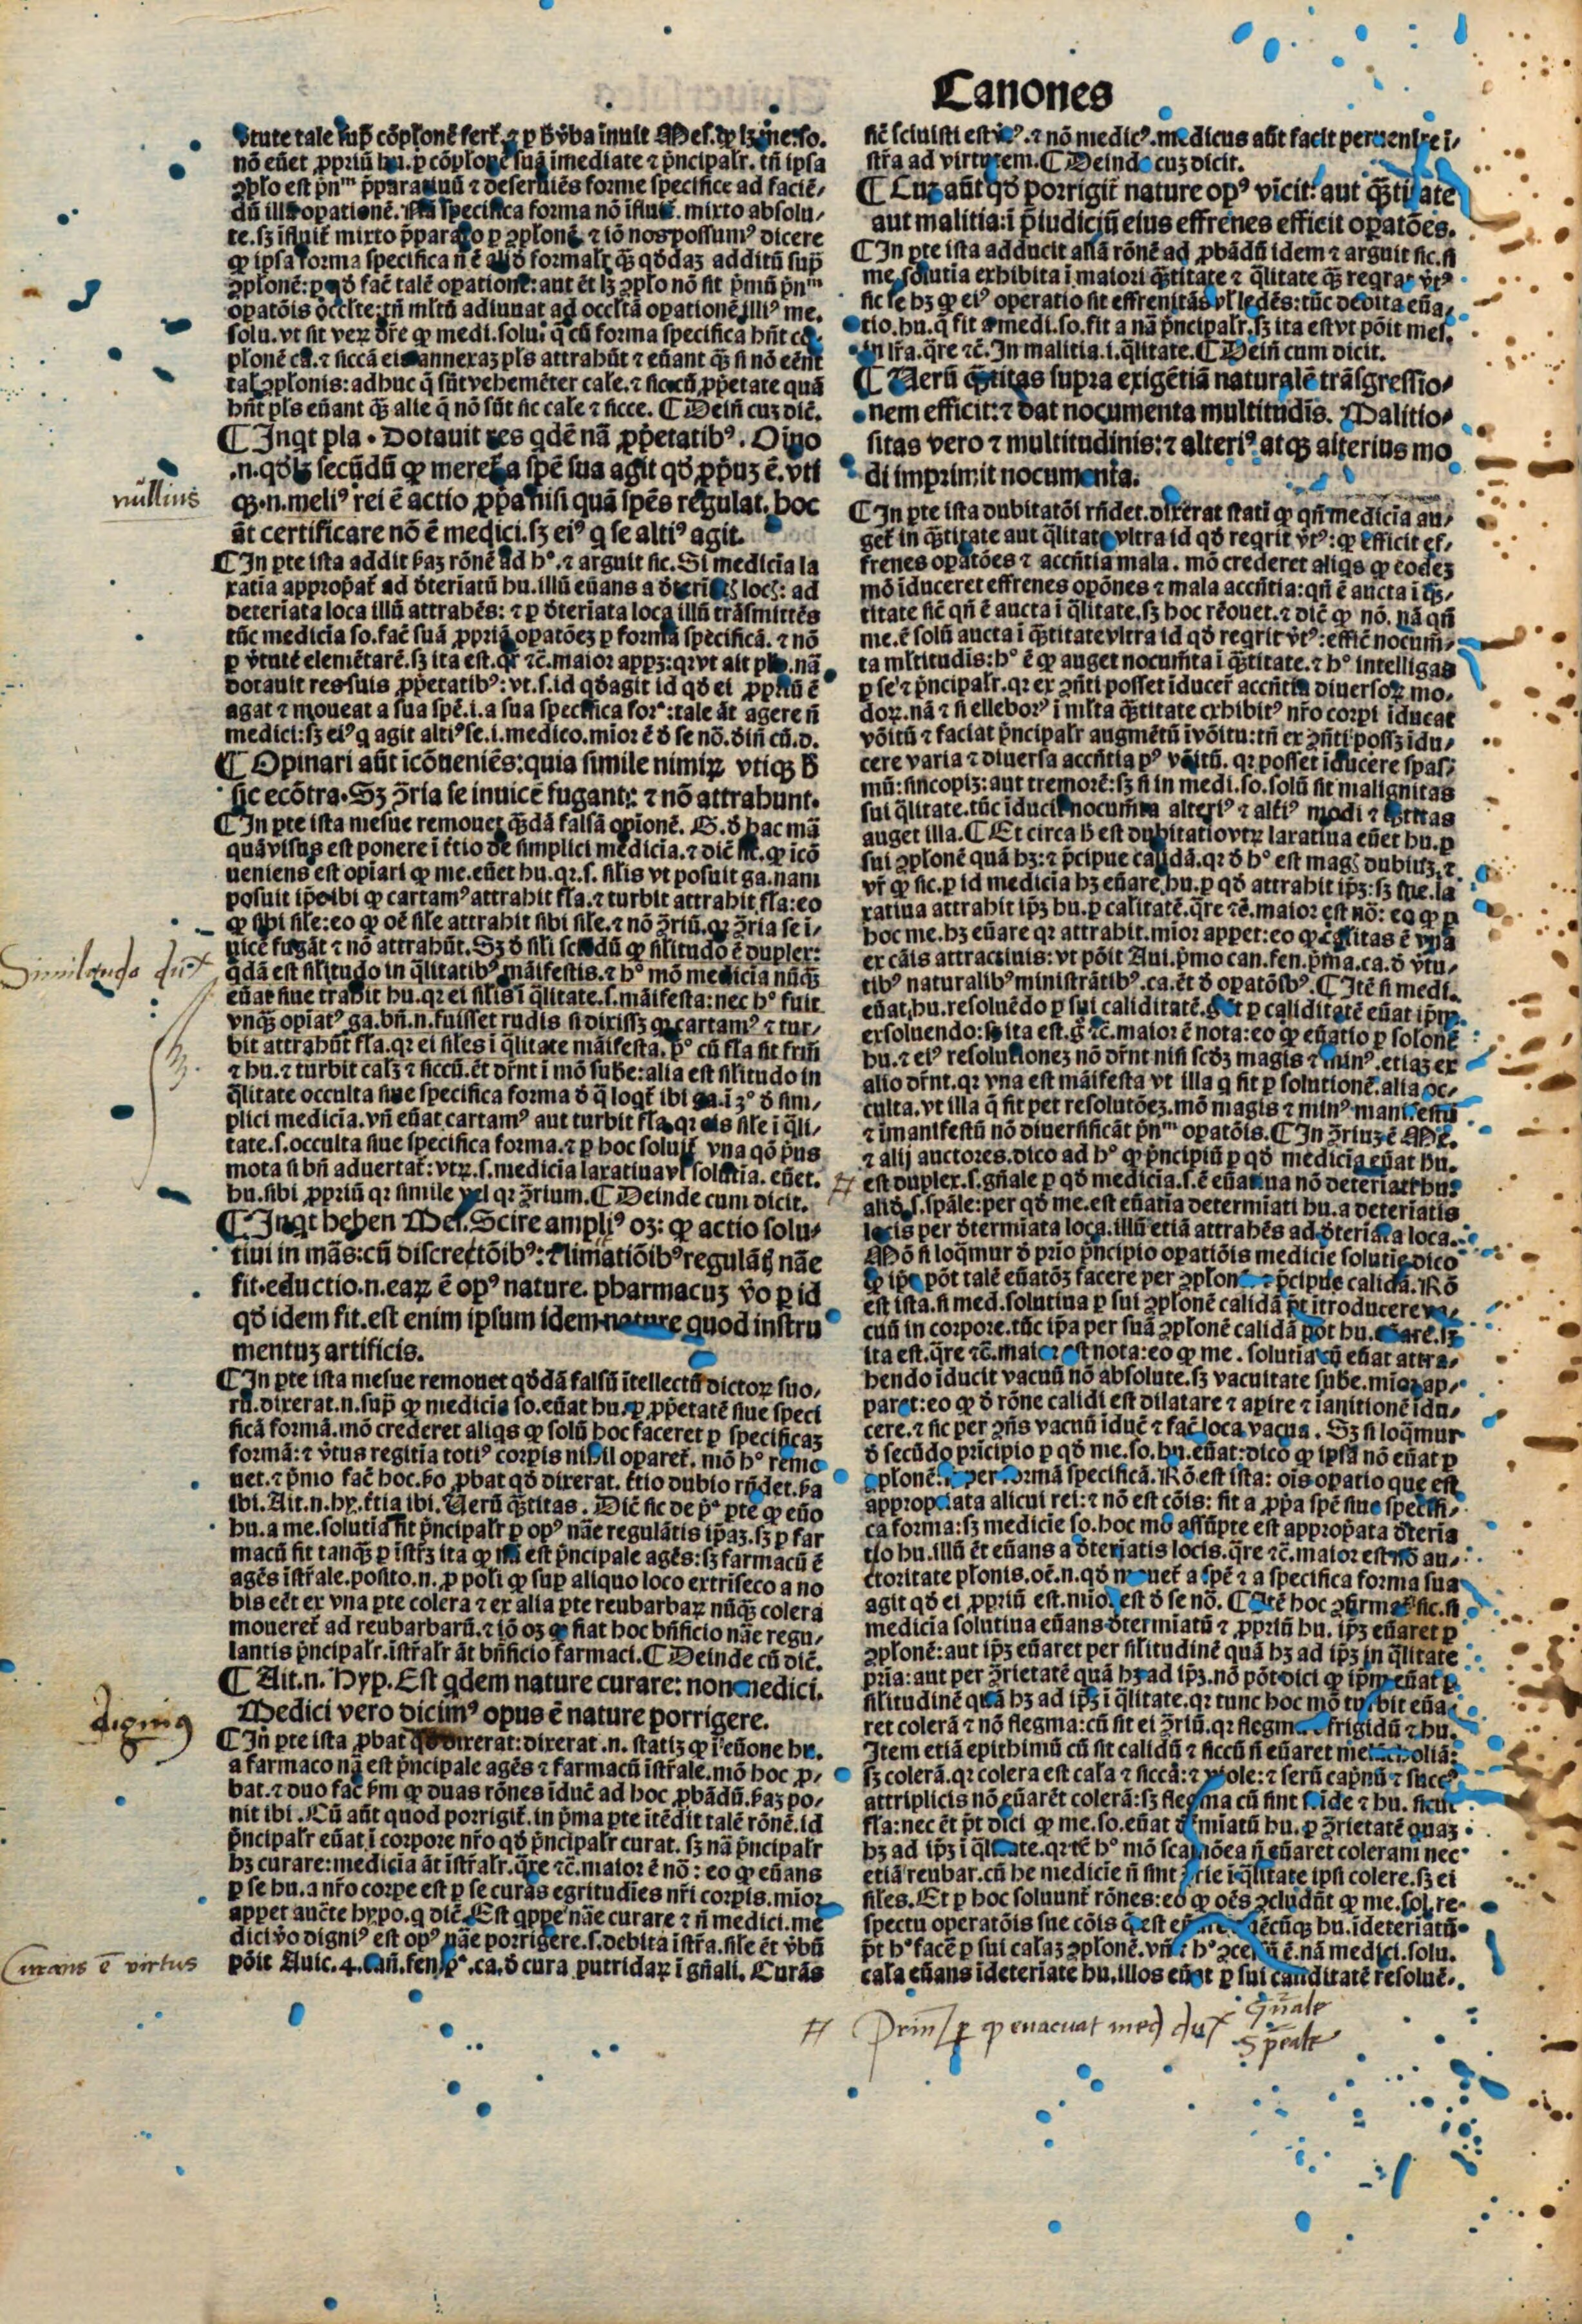 Canones
nō eūet ꝓpriū hu. ꝑ cōplonē suā īmediate ⁊ p̄ncipalr̄. tn̄ ipsa
dū illā opationē. specifica forma nō īfluit. mixto absolu/
te. sꝫ īfluit mixto p̄parato ꝑ ꝯplonē ⁊ iō nos possumꝰ dicere
solu. vt sit veꝝ dr̄e ꝙ medi. solu. q̄ cū forma specifica hn̄t cō
plonē ca. ⁊ siccā eis annexaꝫ pls attrahūt ⁊ euant q̄ꝫ si nō eēnt
tal ꝯplonis: adhuc q̄ sūt vehemēter cale. ⁊ sicce cū ꝓpetate quā
hn̄t pls eūant q̄ꝫ alie q̄ nō sūt sic cale ⁊ sicce. ¶ Dein̄ cuꝫ dic̄.
¶ Inqt pla. Dotauit res qdē nā ꝓpetatibꝰ. Oīno
.n. qd̄lꝫ secūdū ꝙ meret a spē sua agit qd̄ ꝓpuꝫ ē. vti
qꝫ .n. meliꝰ rei ē actio ꝓpa nisi quā spēs regulat. hoc
āt certificare nō ē medici. sꝫ eiꝰ q se altiꝰ agit.
nullius
¶ In pte ista addit ẜaꝫ rōnē ad hᵒ. ⁊ arguit sic. Si medicīa la
xatia appropat ad d̄teriatū hu. illū eūans a d̄teriatꝭ locꝭ: ad
deteriata loca illū attrahēs: ⁊ ꝑ d̄teriata loca illū trāsmittēs
tūc medicīa so. fac̄ suā ꝓpriā opatōeꝫ ꝑ formā specificā. ⁊ nō
ꝑ v̄tutē elemētarē. sꝫ ita est. qr̄ ⁊c̄. maior appꝫ: qꝛ vt ait pla. nā
dotauit res suis ꝓpetatibꝰ: vt. s. id qd̄ agit id qd̄ ei ꝓpriū ē
agat ⁊ moueat a sua spē. i. a sua specifica forᵃ: tale āt agere n̄
medici: sꝫ eiꝰ q agit altiꝰ se. i. medico. mīor ē d̄ se nō. dīn cū. d.
¶ Opinari aūt īcōueniēs: quia simile nimiꝝ vtiqꝫ ẜ
sic ecōtra. Sꝫ ꝯ̄ria se inuicē fugant: ⁊ nō attrahunt.
¶ In pte ista mesue remouet q̄dā falsā opīonē. G. d̄ hac mā
quā visus est ponere ī t̄tio de simplici medicīa. ⁊ dic̄ sic. ꝙ īcō
ueniens est opīari ꝙ me. eūet hu. qꝛ. s. silis vt posuit ga. nam
posuit ip̄e ibi ꝙ cartamꝰ attrahit fla. ⁊ turbit attrahit fla: eo
ꝙ sibi sile: eo ꝙ oē sile attrahit sibi sile. ⁊ nō ꝯ̄riū. qꝛ ꝯ̄ria se ī/
uicē fugāt ⁊ nō attrahūt. Sꝫ d̄ sili sciēdū ꝙ silitudo ē duplex:
Similitudo dux
q̄dā est silitudo in q̄litatibꝰ māifestis. ⁊ hᵒ mō medicīa nūq̄ꝫ
eūat siue trahit hu. qꝛ ei silis ī q̄litate. s. māifesta: nec hᵒ fuit
vnq̄ꝫ opīatꝰ ga. bn̄. n. fuisset rudis si dixissꝫ ꝙ cartamꝰ ⁊ tur/
bit attrahūt fla. qꝛ ei siles ī q̄litate māifesta. pᵒ cū fla sit frm̄
⁊ hu. ⁊ turbit calꝫ ⁊ siccū. ēt dr̄nt ī mō sube: alia est silitudo in
q̄litate occulta siue specifica forma d̄ q̄ logt̄ ibi ga. ī 3ᵒ d̄ sim/
plici medicīa. vn̄ eūat cartamꝰ aut turbit fla. qꝛ eis sile ī q̄li/
tate. s. occulta siue specifica forma. ⁊ ꝑ hoc soluit̄ vna qō p̄us
mota si bn̄ aduertat: vtꝝ. s. medicīa laxatiua vl solutīa. eūet.
hu. sibi ꝓpriū qꝛ simile vel qꝛ ꝯ̄rium. ¶ Deinde cum dicit.
¶ Inqt heben Mes. Scire ampliꝰ oꝫ: ꝙ actio solu/
tiui in mās: cū discretōibꝰ: ⁊ limiatiōibꝰ regulātꝭ nāe
fit. eductio. n. eaꝝ ē opꝰ nature. pharmacuꝫ v̄o ꝑ id
qd̄ idem fit. est enim ipsum idem nature quod instru
mentuꝫ artificis.
¶ In pte ista mesue remouet qd̄dā falsū ītellectū dictoꝝ suo/
rū. dixerat. n. sup̄ ꝙ medicīa so. eūat hu. ꝑ ꝓpetatē siue speci
ficā formā. mō crederet aliqs ꝙ solū hoc faceret ꝑ specificaꝫ
formā: ⁊ v̄tus regitīa totiꝰ corpis nihil oparet̄. mō hᵒ remo
uet. ⁊ p̄mo fac̄ hoc. ẜo ꝓbat qd̄ dixerat. t̄tio dubio rn̄det. ẜa
ibi. Ait. n. hy. t̄tia ibi. Uerū q̄ꝫtitas. Dic̄ sic de pᵃ pte ꝙ eūo
hu. a me. solutīa fit p̄ncipalr̄ ꝑ opꝰ nāe regulātis ip̄aꝫ. sꝫ ꝑ far
macū fit tanq̄ꝫ ꝑ īstr̄ꝫ ita ꝙ nā est p̄ncipale agēs: sꝫ farmacū ē
agēs īstr̄ale. posito. n. ꝑ poli ꝙ sup aliquo loco extrīseco a no
bis eēt ex vna pte colera ⁊ ex alia pte reubarbaꝝ nūq̄ꝫ colera
moueret̄ ad reubarbarū. ⁊ iō oꝫ ꝙ fiat hoc bn̄ficio nāe regu/
lantis p̄ncipalr̄. īstr̄alr̄ āt bn̄ficio farmaci. ¶ Deinde cū dic̄.
¶ Ait. n. Hyp. Est qdem nature curare: non medici.
Medici vero dicimꝰ opus ē nature porrigere.
dignius
¶ In pte ista ꝓbat qd̄ dixerat: dixerat. n. statiꝫ ꝙ ī eūone hu.
a farmaco nā est p̄ncipale agēs ⁊ farmacū īstr̄ale. mō hoc ꝓ/
bat. ⁊ duo fac̄ ẜm ꝙ duas rōnes īduc̄ ad hoc ꝓbādū. ẜaꝫ po/
nit ibi. Cū aūt quod porrigit̄. in p̄ma pte ītēdit talē rōnē. id
p̄ncipalr̄ eūat ī corpore nr̄o qd̄ p̄ncipalr̄ curat. sꝫ nā p̄ncipalr̄
hꝫ curare: medicīa āt īstr̄alr̄. q̄re ⁊c̄. maior ē nō: eo ꝙ eūans
ꝑ se hu. a nr̄o corpe est ꝑ se curās egritudīes nr̄i corpis. mīor
appet aucte hypo. q dic̄. Est qppe nāe curare ⁊ n̄ medici. me
dici v̄o digniꝰ est opꝰ nāe porrigere. s. debita īstr̄a. sile ēt v̄bū
Curans ē virtus
pōit Auic. 4. can̄. fen pᵃ. ca. d̄ cura putridaꝝ ī gn̄ali. Curās
sic̄ sciuisti est v̄tꝰ. ⁊ nō medicꝰ. medicus aūt facit peruenire ī/
str̄a ad virtutem. ¶ Deinde cuꝫ dicit.
¶ Cuꝫ aūt qd̄ porrigit̄ nature opꝰ vīcit: aut q̄ꝫtitate
aut malitia: ī p̄iudiciū eius effrenes efficit opatōes.
¶ In pte ista adducit aliā rōnē ad ꝓbādū idem ⁊ arguit sic. si
me. solutia exhibita ī maiori q̄ꝫtitate ⁊ q̄litate q̄ꝫ regrat v̄tꝰ
sic se hꝫ ꝙ eiꝰ operatio sit effrenitās vl ledēs: tūc debita eūa/
tio. hu. q̄ fit a medi. so. fit a nā p̄ncipalr̄. sꝫ ita est vt pōit mes.
in lr̄a. q̄re ⁊c̄. In malitia. i. q̄litate. ¶ Dein̄ cum dicit.
¶ Uerū q̄ꝫtitas supra exigētiā naturalē trāsgressio/
nem efficit: ⁊ dat nocumenta multitudīs. Malitio/
sitas vero ⁊ multitudinis: ⁊ alteriꝰ atqꝫ alterius mo
di imprimit nocumenta.
¶ In pte ista dubitatōi rn̄det. dixerat statī ꝙ qn̄ medicīa au/
get̄ in q̄ꝫtitate aut q̄litate vltra id qd̄ regrit v̄tꝰ: ꝙ efficit ef/
frenes opatōes ⁊ accn̄tia mala. mō crederet aliqs ꝙ eodeꝫ
mō īduceret effrenes opōnes ⁊ mala accn̄tia: qn̄ ē aucta ī q̄ꝫ/
titate sic̄ qn̄ ē aucta ī q̄litate. sꝫ hoc rēouet. ⁊ dic̄ ꝙ nō. nā qn̄
me. ē solū aucta ī q̄ꝫtitate vltra id qd̄ regrit v̄tꝰ: effic̄ nocum̄/
ta mltitudīs: hᵒ ē ꝙ auget nocum̄ta ī q̄ꝫtitate. ⁊ hᵒ intelligas
ꝑ se ⁊ p̄ncipalr̄. qꝛ ex ꝯn̄ti posset īducer̄ accn̄tia diuersoꝝ mo/
doꝝ. nā ⁊ si elleborꝰ ī mlta q̄ꝫtitate exhibitꝰ nr̄o corpi īducat
vōitū ⁊ faciat p̄ncipalr̄ augmētū ī vōitu: tn̄ ex ꝯn̄ti possꝫ īdu/
cere varia ⁊ diuersa accn̄tia pꝰ vōitū. qꝛ posset īducere spas/
mū: sincopiꝫ: aut tremorē: sꝫ si in medi. so. solū sit malignitas
auget illa. ¶ Et circa ẜ est dubitatio vtꝝ laxatiua eūet hu. ꝑ
sui ꝯplonē quā hꝫ: ⁊ p̄cipue calidā. qꝛ d̄ hᵒ est magꝭ dubiuꝫ. ⁊
vr̄ ꝙ sic. ꝑ id medicīa hꝫ eūare hu. ꝑ qd̄ attrahit ip̄ꝫ: sꝫ siue. la
xatiua attrahit ip̄ꝫ hu. ꝑ calitatē. q̄re ⁊c̄. maior est nō: eo ꝙ ꝑ
hoc me. hꝫ eūare qꝛ attrahit. mīor appet: eo ꝙ c̄alitas ē vna
ex cāis attractiuis: vt pōit Aui. p̄mo can. fen. p̄ma. ca. d̄ v̄tu/
tibꝰ naturalibꝰ ministrātibꝰ. ca. ēt d̄ opatōibꝰ. ¶ Itē si medi.
exsoluendo: sꝫ ita est. g̊ ⁊c̄. maior ē nota: eo ꝙ eūatio ꝑ solonē
hu. ⁊ eiꝰ resolutioneꝫ nō dr̄nt nisi scdꝫ magis ⁊ minꝰ. etiaꝫ ex
alio dr̄nt. qꝛ vna est māifesta vt illa q fit ꝑ solutionē. alia oc/
culta. vt illa q̄ fit per resolutōeꝫ. mō magis ⁊ minꝰ manifestū
⁊ īmanifestū nō diuersificāt p̄nᵐ opatōis. ¶ In ꝯ̄riuꝫ ē Me.
⁊ alij auctores. dico ad hᵒ ꝙ p̄ncipiū ꝑ qd̄ medicīa eūat hu.
est duplex. s. gn̄ale ꝑ qd̄ medicīa. s. ē eūatiua nō deteriati hu:
aliō. s. spāle: per qd̄ me. est eūatia determīati hu. a deteriatis
locis per d̄termīata loca. illū etiā attrahēs ad d̄teriata loca.
Mō si loq̄mur d̄ prīo p̄ncipio opatiōis medicie solutie dico
est ista. si med. solutiua ꝑ sui ꝯplonē calidā p̄t ītroducere va/
cuū in corpore. tūc ip̄a per suā ꝯplonē calidā pōt hu. eūare. sꝫ
ita est. q̄re ⁊c̄. maior est nota: eo ꝙ me. solutia cū eūat attra/
hendo īducit vacuū nō absolute. sꝫ vacuitate sube. mīor ap/
paret: eo ꝙ d̄ rōne calidi est dilatare ⁊ apire ⁊ īanitionē īdu/
cere. ⁊ sic per ꝯn̄s vacuū īduc̄ ⁊ fac̄ loca vacua. Sꝫ si loq̄mur
d̄ secūdo prīcipio ꝑ qd̄ me. so. hu. eūat: dico ꝙ ipsa nō eūat ꝑ
ꝯplonē: sꝫ per formā specificā. Rō est ista: oīs opatio que est
appropriata alicui rei: ⁊ nō est cōis: fit a ꝓpa spē siue specifi/
ca forma: sꝫ medicie so. hoc mō assūpte est appropata d̄teria
tio hu. illū ēt eūans a d̄teriatis locis. q̄re ⁊c̄. maior est nō au/
ctoritate plonis. oē. n. qd̄ mouet̄ a spē ⁊ a specifica forma sua
agit qd̄ ei ꝓpriū est. mīor est d̄ se nō. ¶ Itē hoc ꝯfirmat̄ sic. si
medicīa solutiua eūans d̄termiatū ⁊ ꝓpriū hu. ip̄ꝫ eūaret ꝑ
ꝯplonē: aut ip̄ꝫ eūaret per silitudinē quā hꝫ ad ip̄ꝫ in q̄litate
pria: aut per ꝯ̄rietatē quā hꝫ ad ip̄ꝫ. nō pōt dici ꝙ ip̄m eūat ꝑ
silitudinē quā hꝫ ad ip̄ꝫ ī q̄litate. qꝛ tunc hoc mō turbit eūa/
ret colerā ⁊ nō flegma: cū sit ei ꝯ̄riū. qꝛ flegma ē frigidū ⁊ hu.
Item etiā epithimū cū sit calidū ⁊ siccū n̄ eūaret melācholiā:
sꝫ colerā. qꝛ colera est cala ⁊ siccā: ⁊ viole: ⁊ serū capnū ⁊ succꝰ
attriplicis nō eūarēt colerā: sꝫ flegma cū sint fride ⁊ hu. sicut
fla: nec ēt p̄t dici ꝙ me. so. eūat d̄t̄miatū hu. ꝑ ꝯ̄rietatē quaꝫ
hꝫ ad ip̄ꝫ ī q̄litate. qꝛ tc̄ hᵒ mō scamōea n̄ eūaret coleram nec
etiā reubar. cū he medicie n̄ sint ꝯ̄rie ī q̄litate ipsi colere. sꝫ ei
siles. Et ꝑ hoc soluunt̄ rōnes: eo ꝙ oēs ꝯcludūt ꝙ me. sol. re/
p̄t hᵒ facē ꝑ sui calaꝫ ꝯplonē. vn̄ ⁊ hᵒ ꝯcessū ē. nā medici. solu.
cala eūans īdeteriate hu. illos eūat ꝑ sui caliditatē resoluē/
# Prin ꝑ ꝙ euacuat med dux Gn̄ale
Sp̄eale